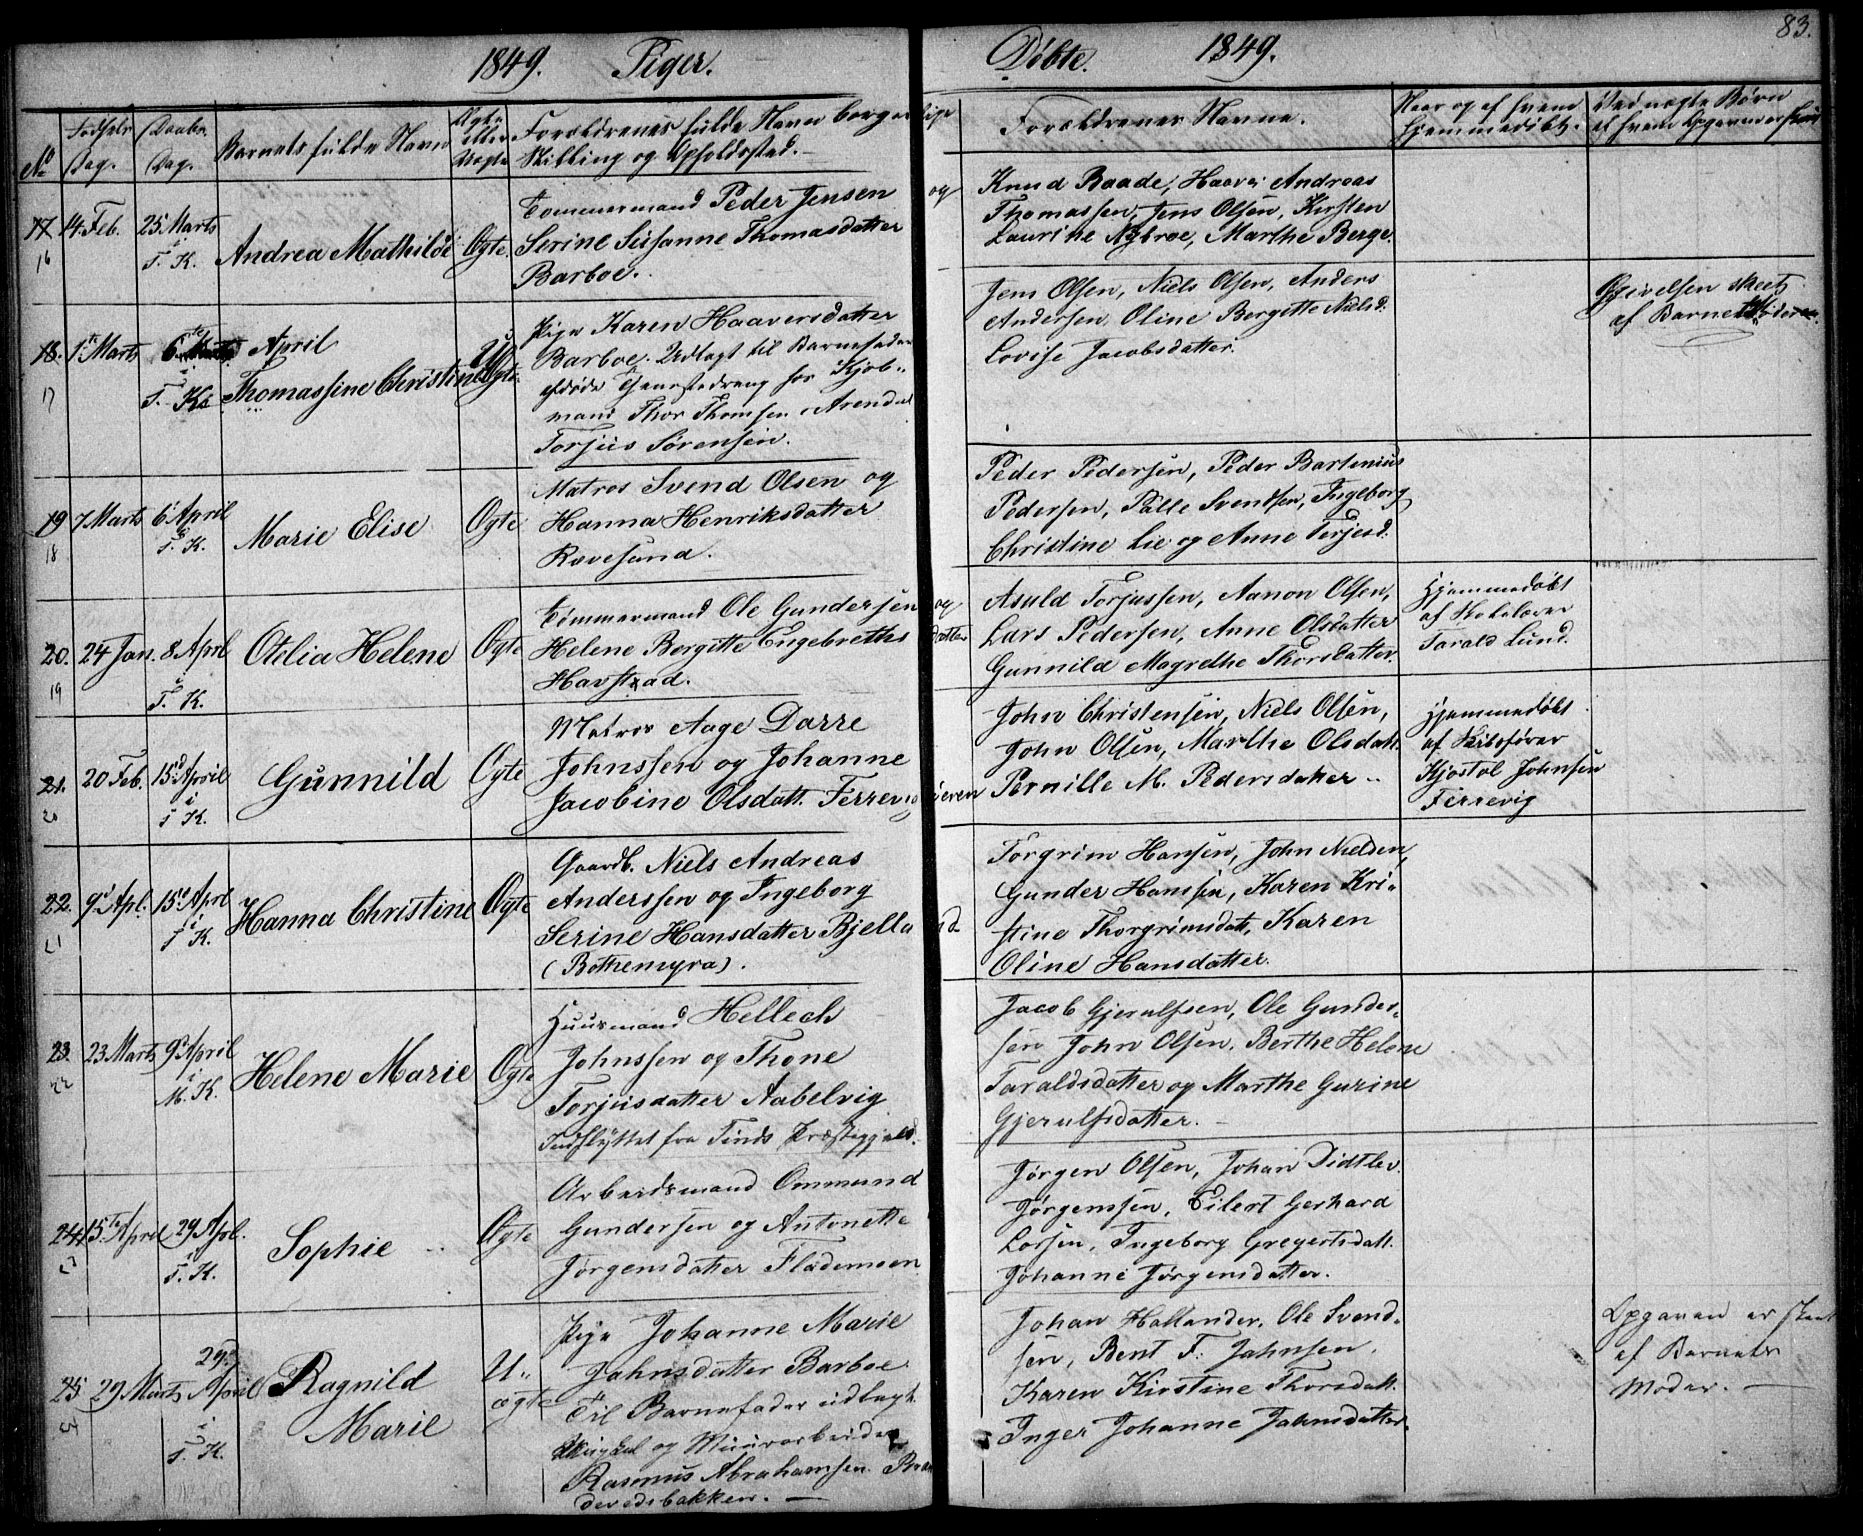 1849. Piger.
No
Fødsels Dag.
Daabs Dag.
Barnets fulde Navn
Ægte eller Uægte
Forældrenes fulde Navn borger
Stilling og Opholdssted.
17 14. Feb. 25. Marts
16 i T. K.
Andrea Mathilde
Ægte.
Tømmermand Peder Jensen
Serine Susanne Thomasdatter
Barboe.
18. 1 Marts 6te April
17 i T. K.
Thomassine Christine
Uægte
Pige Karen Haaversdatter
Barboe. Udlagt til Barnefader
Tjenestedreng hos Kjøb-
mand Thor Thomsen Arendal
Torjus Sørensen.
19 7 Marts 6 April
18 i T. K.
Marie Elise
Ægte
Matros Svend Olsen og
Hanna Henriksdatter
Rævesand.
20. 24 Jan. 8 Aprl
19 i T. K.
Otelia Helene
Ægte
Tømmermand Ole Gundersen
Helene Bergitte Engebreths
Havstad.
21. 20 Feb. 15d April
20 i T K.
Gunnild
Ægte
Matros Aage Darre
Johnssen og Johanne
Jacobine Olsdatt. Ferrev
22. 9d Apl. 15d Aprl
21 i T K.
Hanna Christine
Ægte
Gaardb. Niels Andreas
Anderssen og Ingeborg
Serine Hansdatter Bjella
(Bothemyra).
23. 23. Marts 9d April
22 i M. K.
Helene Marie
Ægte
Huusmand Hellech
Johnssen og Thone
Torjusdatter Aabelvig
Indflyttet fra Tinds Præstegjeld.
24 15.te April 29 Apl.
23 i T. K.
Sophie
Ægte
Arbeidsmand Ommund
Gundersen og Antonette
Jørgensdatter Flademoen
25 29 Marts 29 April
i T. K.
Ragnild
Marie
U-
ægte
Pige Johanne Marie
Jahnsdatter Barboe
Til Barnefader udlagt
og Muurarbeider
Rasmus Abrahamsen.
83.
Døbte. 1849.
Forældrenes Navne.
Naar og af hvem
hjemmedøbt.
Ved uægte Børn
af hvem Opgaven er skeet
og
Knud Baade, Haaver Andreas
Thomassen, Jens Olsen, Kirsten
Laurine Nybroe, Marthe Berge.
Jens Olsen, Niels Olsen, Anders
Andersen, Oline Bergitte Nielsd.
Lovise Jacobsdatter.
Opgivelsen skeet
af Barnets Moder
Peder Pedersen, Peder Bartenius
Pedersen, Palle Svendsen, Ingeborg
Christine Lie og Anne Terjesd.
og
datter
Asuld Torjussen, Aanon Olsen,
Lars Pedersen, Anne Olsdatter
Gunnild Magrethe Thorsdatter
Hjemmedøbt
af Skolelærer
Tarald Lund.
John Christensen, Niels Olsen,
John Olsen, Marthe Olsdatt.
Pernille M. Pedersdatter
Hjemmedøbt
af Skibsfører
Kjøstol Johnsen
Ferrevig
Torgrim Hansen, John Nielsen,
Gunder Hanssen, Karen Kri-
stine Thorgrimsdatt, Karen
Oline Hansdatter.
Jacob Gjerulfsen, Ole Gunder-
sen John Olsen, Berthe Helene
Taraldsdatter og Marthe Gurine
Gjerulfsdatter.
Jørgen Olsen, Johan Didtlev
Jørgenssen, Eilert Gerhard
Larsen, Ingeborg Gregertsdatt.
Johanne Jørgensdatter.
Johan Hallander, Ole Svend-
sen, Bent F. Jahnsen,
Karen Kirstine Thorsdatt.
Inger Johanne Jahnsdatter.
Opgaven er skeet
af Barnets
Moder.